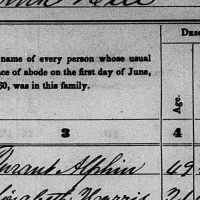 Des
name of every person whose usual
ce of abode on the first day of June,
50, was in this family.
Age.
3
4
Durant Alphin 49
Elizabeth Harris